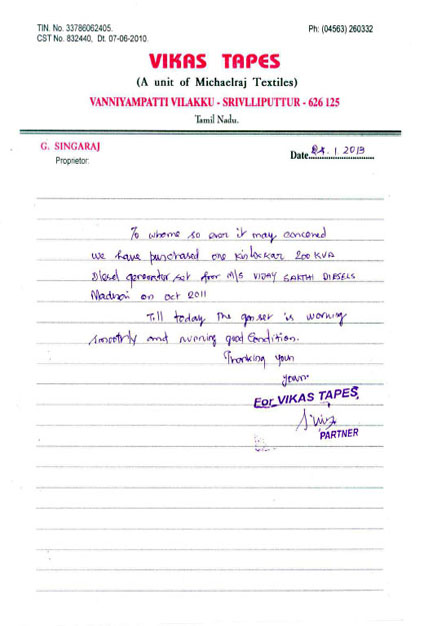 TIN. No. 33786062405.
CST No. 832440, Dt. 07-06-2010.
Ph: (04563) 260332
VIKAS TAPES
(A unit of Michaelraj Textiles)
VANNIYAMPATTI VILAKKU - SRIVLLIPUTTUR - 626 125
Tamil Nadu.
G. SINGARAJ
Proprietor:
Date 24.1.2013
To whome so ever it may concerned
we have purchased one kirloskar 200 KVA
Diesel generator set from M/S VIJAY SAKTHI DIESELS
Madurai on oct 2011
Till today the genset is working
smoothly and running good condition.
Thanking your
your
For VIKAS TAPES,
PARTNER